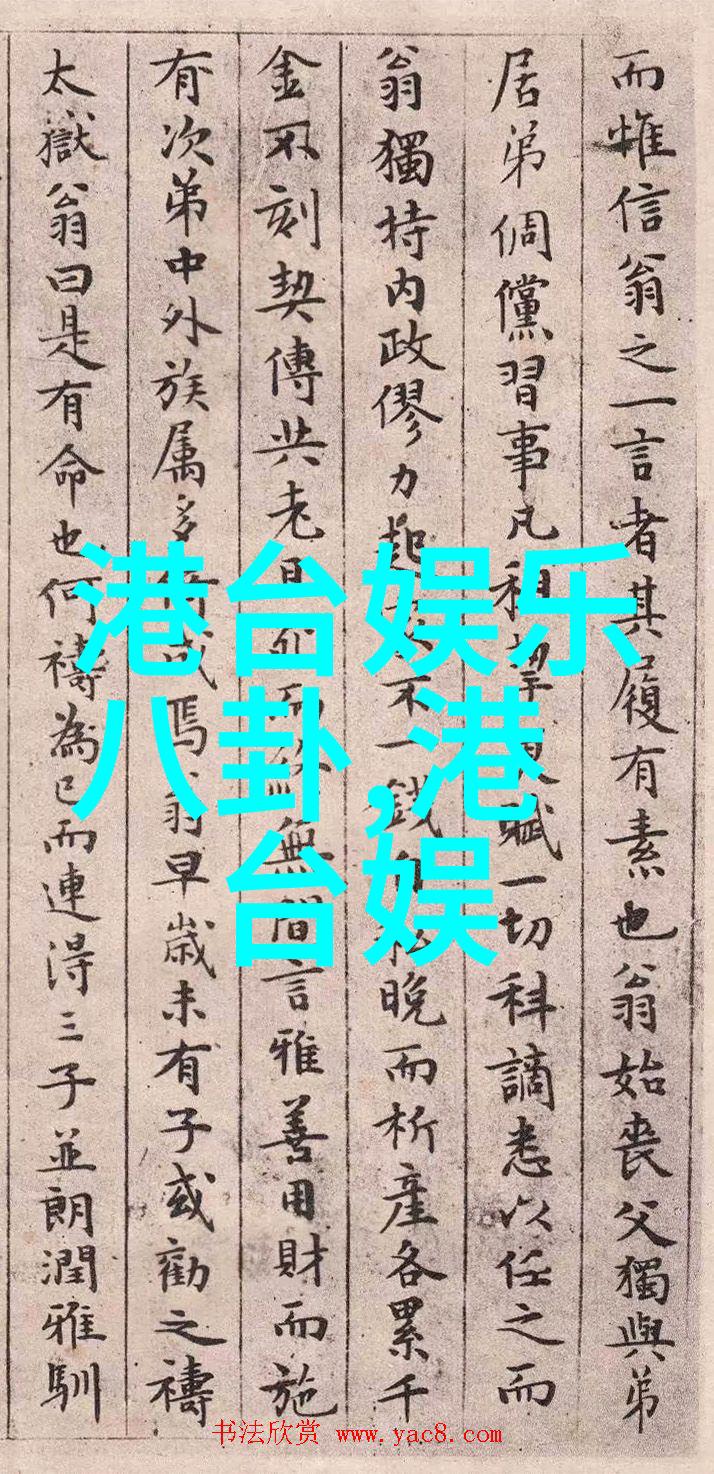 而惟信翁之一言者其履有素也翁始喪父獨與弟
居弟倜儻習事凡租賦一切科謫悉以任之而
翁獨持内政僇力起不一錢晚而析產各累千
金不刻契傳共老無間言雅善用財而施
有次第中外族属多焉翁早歲未有子或勸之禱
太嶽翁曰是有命也何禱為已而連得三子並朗潤雅馴
港台娱乐
八卦,港
台娱
书法欣赏 www.yac8.com